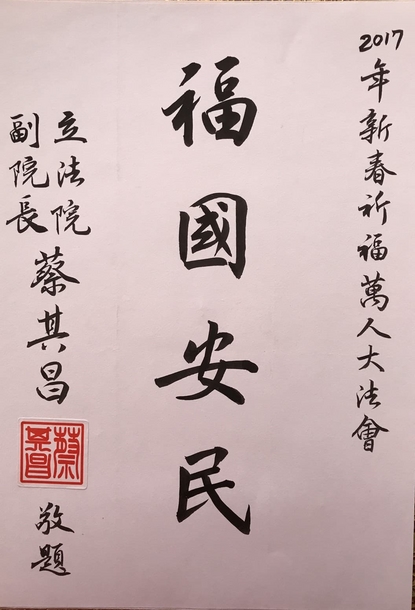 2017年新春祈福萬人大法會
福國安民
立法院
副院長
蔡其昌
蔡其昌
敬題